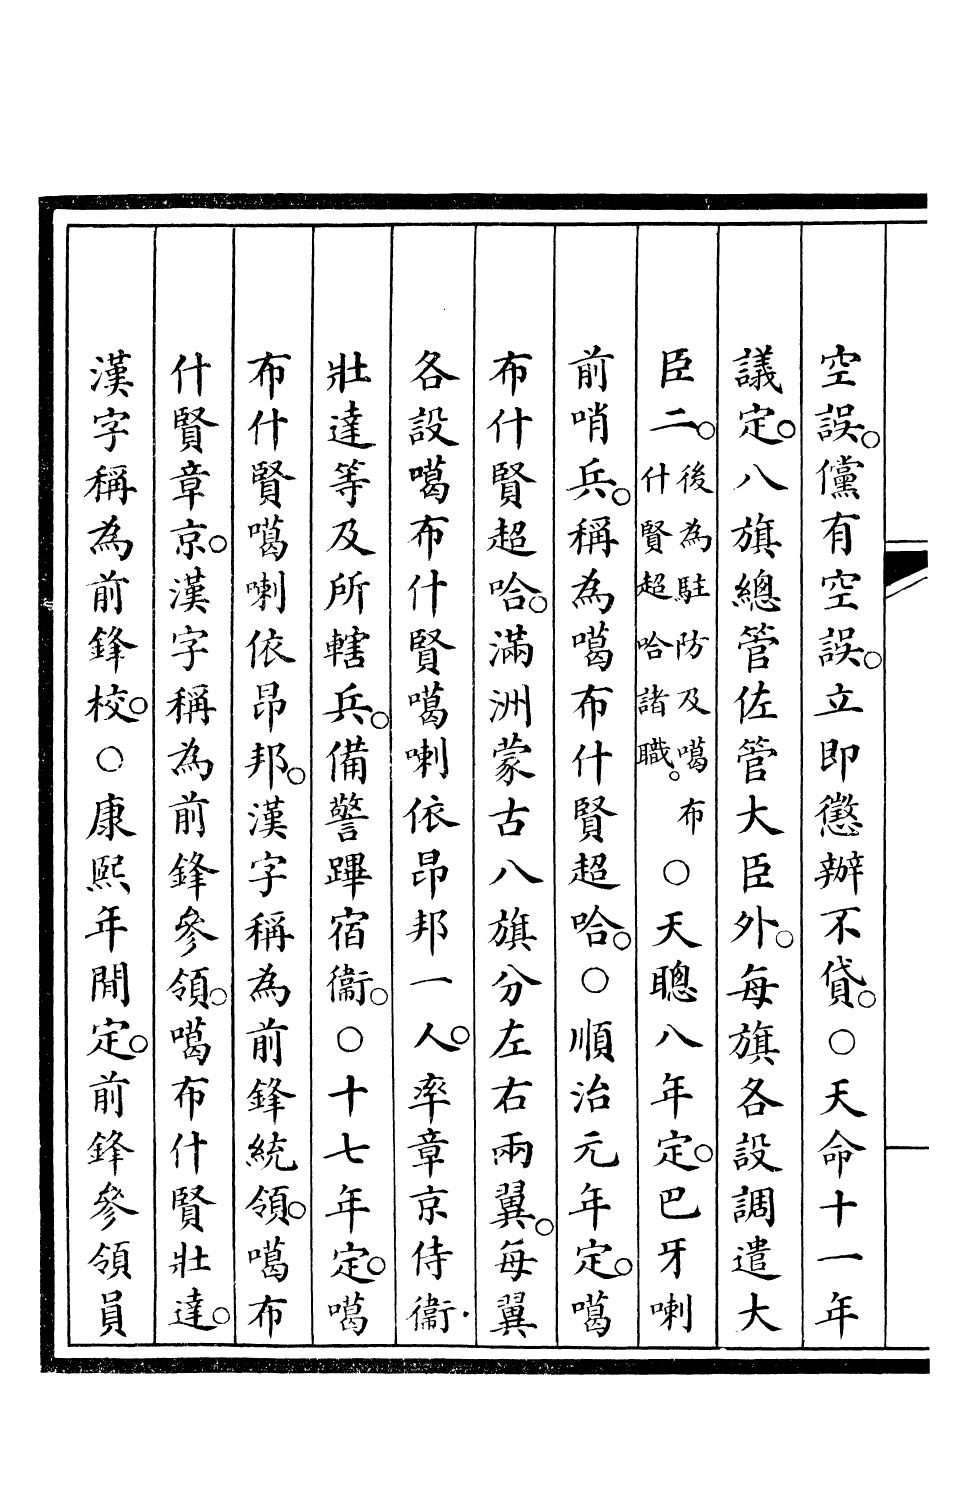 空誤。儻有空誤。立即懲辦不貸。○天命十一年
議定。八旗總管佐管大臣外。每旗各設調遣大
臣二。後為駐防及噶布什賢超哈諸職。○天聰八年定。巴牙喇
前哨兵。稱為噶布什賢超哈。○順治元年定。噶
布什賢超哈。滿洲蒙古八旗分左右兩翼。每翼
各設噶布什賢噶喇依昂邦一人。率章京侍衞.
壯達等及所轄兵。備警蹕宿衞。○十七年定。噶
布什賢噶喇依昂邦。漢字稱為前鋒統領。噶布
什賢章京。漢字稱為前鋒參領。噶布什賢壯達。
漢字稱為前鋒校。○康熙年閒定。前鋒參領員